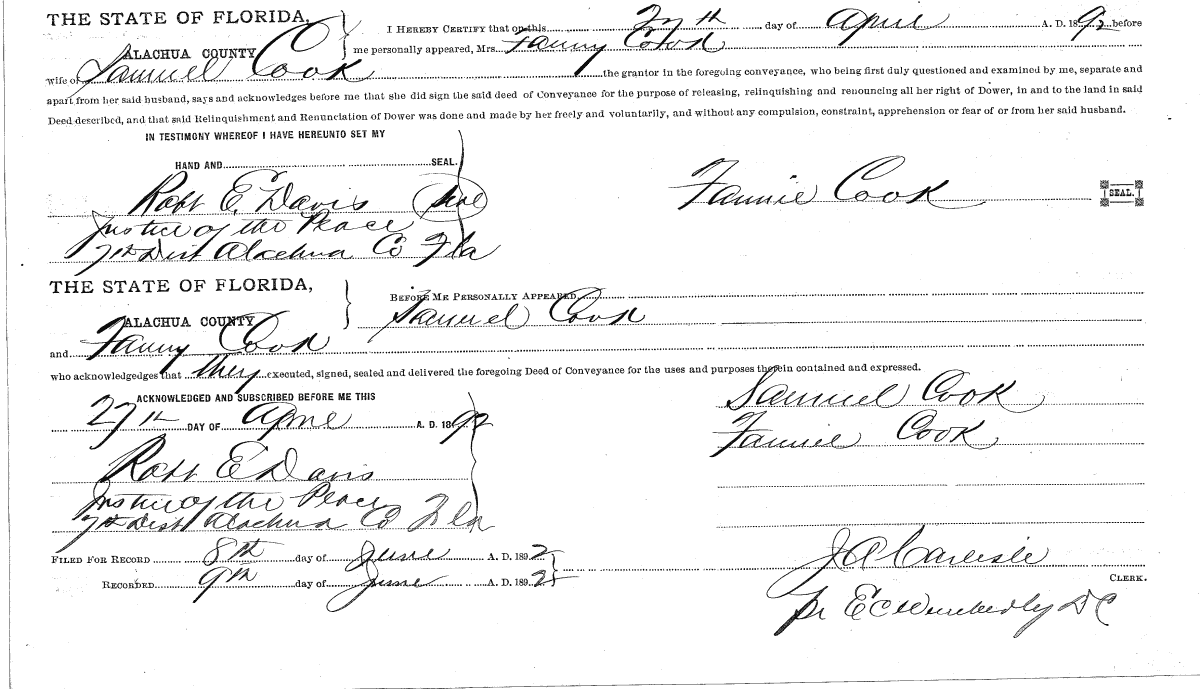 THE STATE OF FLORIDA,
ALACHUA COUNTY
I HEREBY CERTIFY that on this 27th day of April A. D. 1892 before
me personally appeared, Mrs. Fanny Cook
wife of Samuel Cook the grantor in the foregoing conveyance, who being first duly questioned and examined by me, separate and
apart from her said husband, says and acknowledges before me that she did sign the said deed of Conveyance for the purpose of releasing, relinquishing and renouncing all her right of Dower, in and to the land in said
Deed described, and that said Relinquishment and Renunciation of Dower was done and made by her freely and voluntarily, and without any compulsion, constraint, apprehension or fear of or from her said husband.
IN TESTIMONY WHEREOF I HAVE HEREUNTO SET MY
HAND AND SEAL.
Robt E Davis Seal
Fannie Cook SEAL.
Justice of the Peace
7th Dist Alachua Co Fla
THE STATE OF FLORIDA,
ALACHUA COUNTY
BEFORE ME PERSONALLY APPEARED
Samuel Cook
and Fanny Cook
who acknowledgedges that they executed, signed, sealed and delivered the foregoing Deed of Conveyance for the uses and purposes therein contained and expressed.
ACKNOWLEDGED AND SUBSCRIBED BEFORE ME THIS
27th DAY OF April A. D. 1892
Samuel Cook
Fannie Cook
Robt E Davis
Justice of the Peace
7th Dist Alachua Co Fla
FILED FOR RECORD 8th day of June A. D. 1892
RECORDED 9th day of June A. D. 1892
J A Carlisle
CLERK.
pr E C Wimberly D C